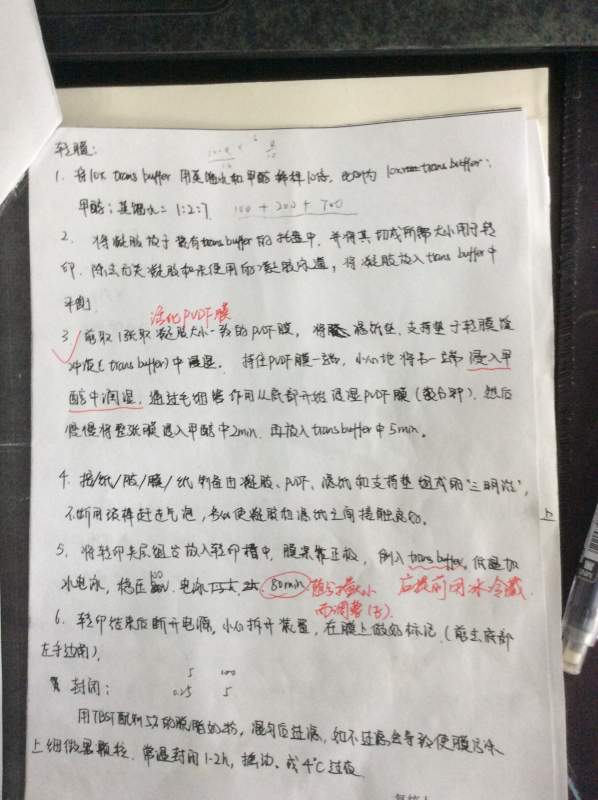 转膜:
1. 将10x trans buffer 用蒸馏水和甲醇稀释10倍, 比例为 10x trans buffer:
甲醇:蒸馏水 = 1:2:7. 100 + 200 + 700
2. 将凝胶放于装有trans buffer的托盘中, 并将其切成所需大小用于转
印. 除去所以凝胶和未使用的凝胶泳道, 将凝胶放入 trans buffer 中
平衡.
活化PVDF膜
3. 剪取1张取凝胶大小一致的PVDF膜, 将滤纸垫、支持垫于转膜缓
冲液(trans buffer)中浸湿. 持住PVDF膜一端, 小心地将另一端浸入甲
醇中润湿, 通过毛细管作用从底部开始浸湿PVDF膜(数分钟). 然后
慢慢将整张膜浸入甲醇中2min. 再放入transbuffer中5min。
4. 按/纸/胶/膜/纸 制备由凝胶、PVDF、滤纸和支持垫组成的"三明治",
不断用滚棒赶走气泡, 务以使凝胶和滤纸之间接触良好。
上
5. 将转印夹层组合放入转印槽中, 膜靠近正极, 倒入trans buffer, 低温加
冰电泳, 稳压 100 . 电泳 80min 随分子量大小 后提前用冰冷藏.
而调整(su).
6. 转印结束后断开电源, 小心拆开装置, 在膜上做好标记. (剪去底部
左手边角).
封闭: 5 100
0.25 5
用TBST配制5%的脱脂奶粉, 混匀后过滤, 如不过滤会导致使膜污染
上细微黑颗粒. 常温封闭1-2h, 摇动. 或4℃过夜.